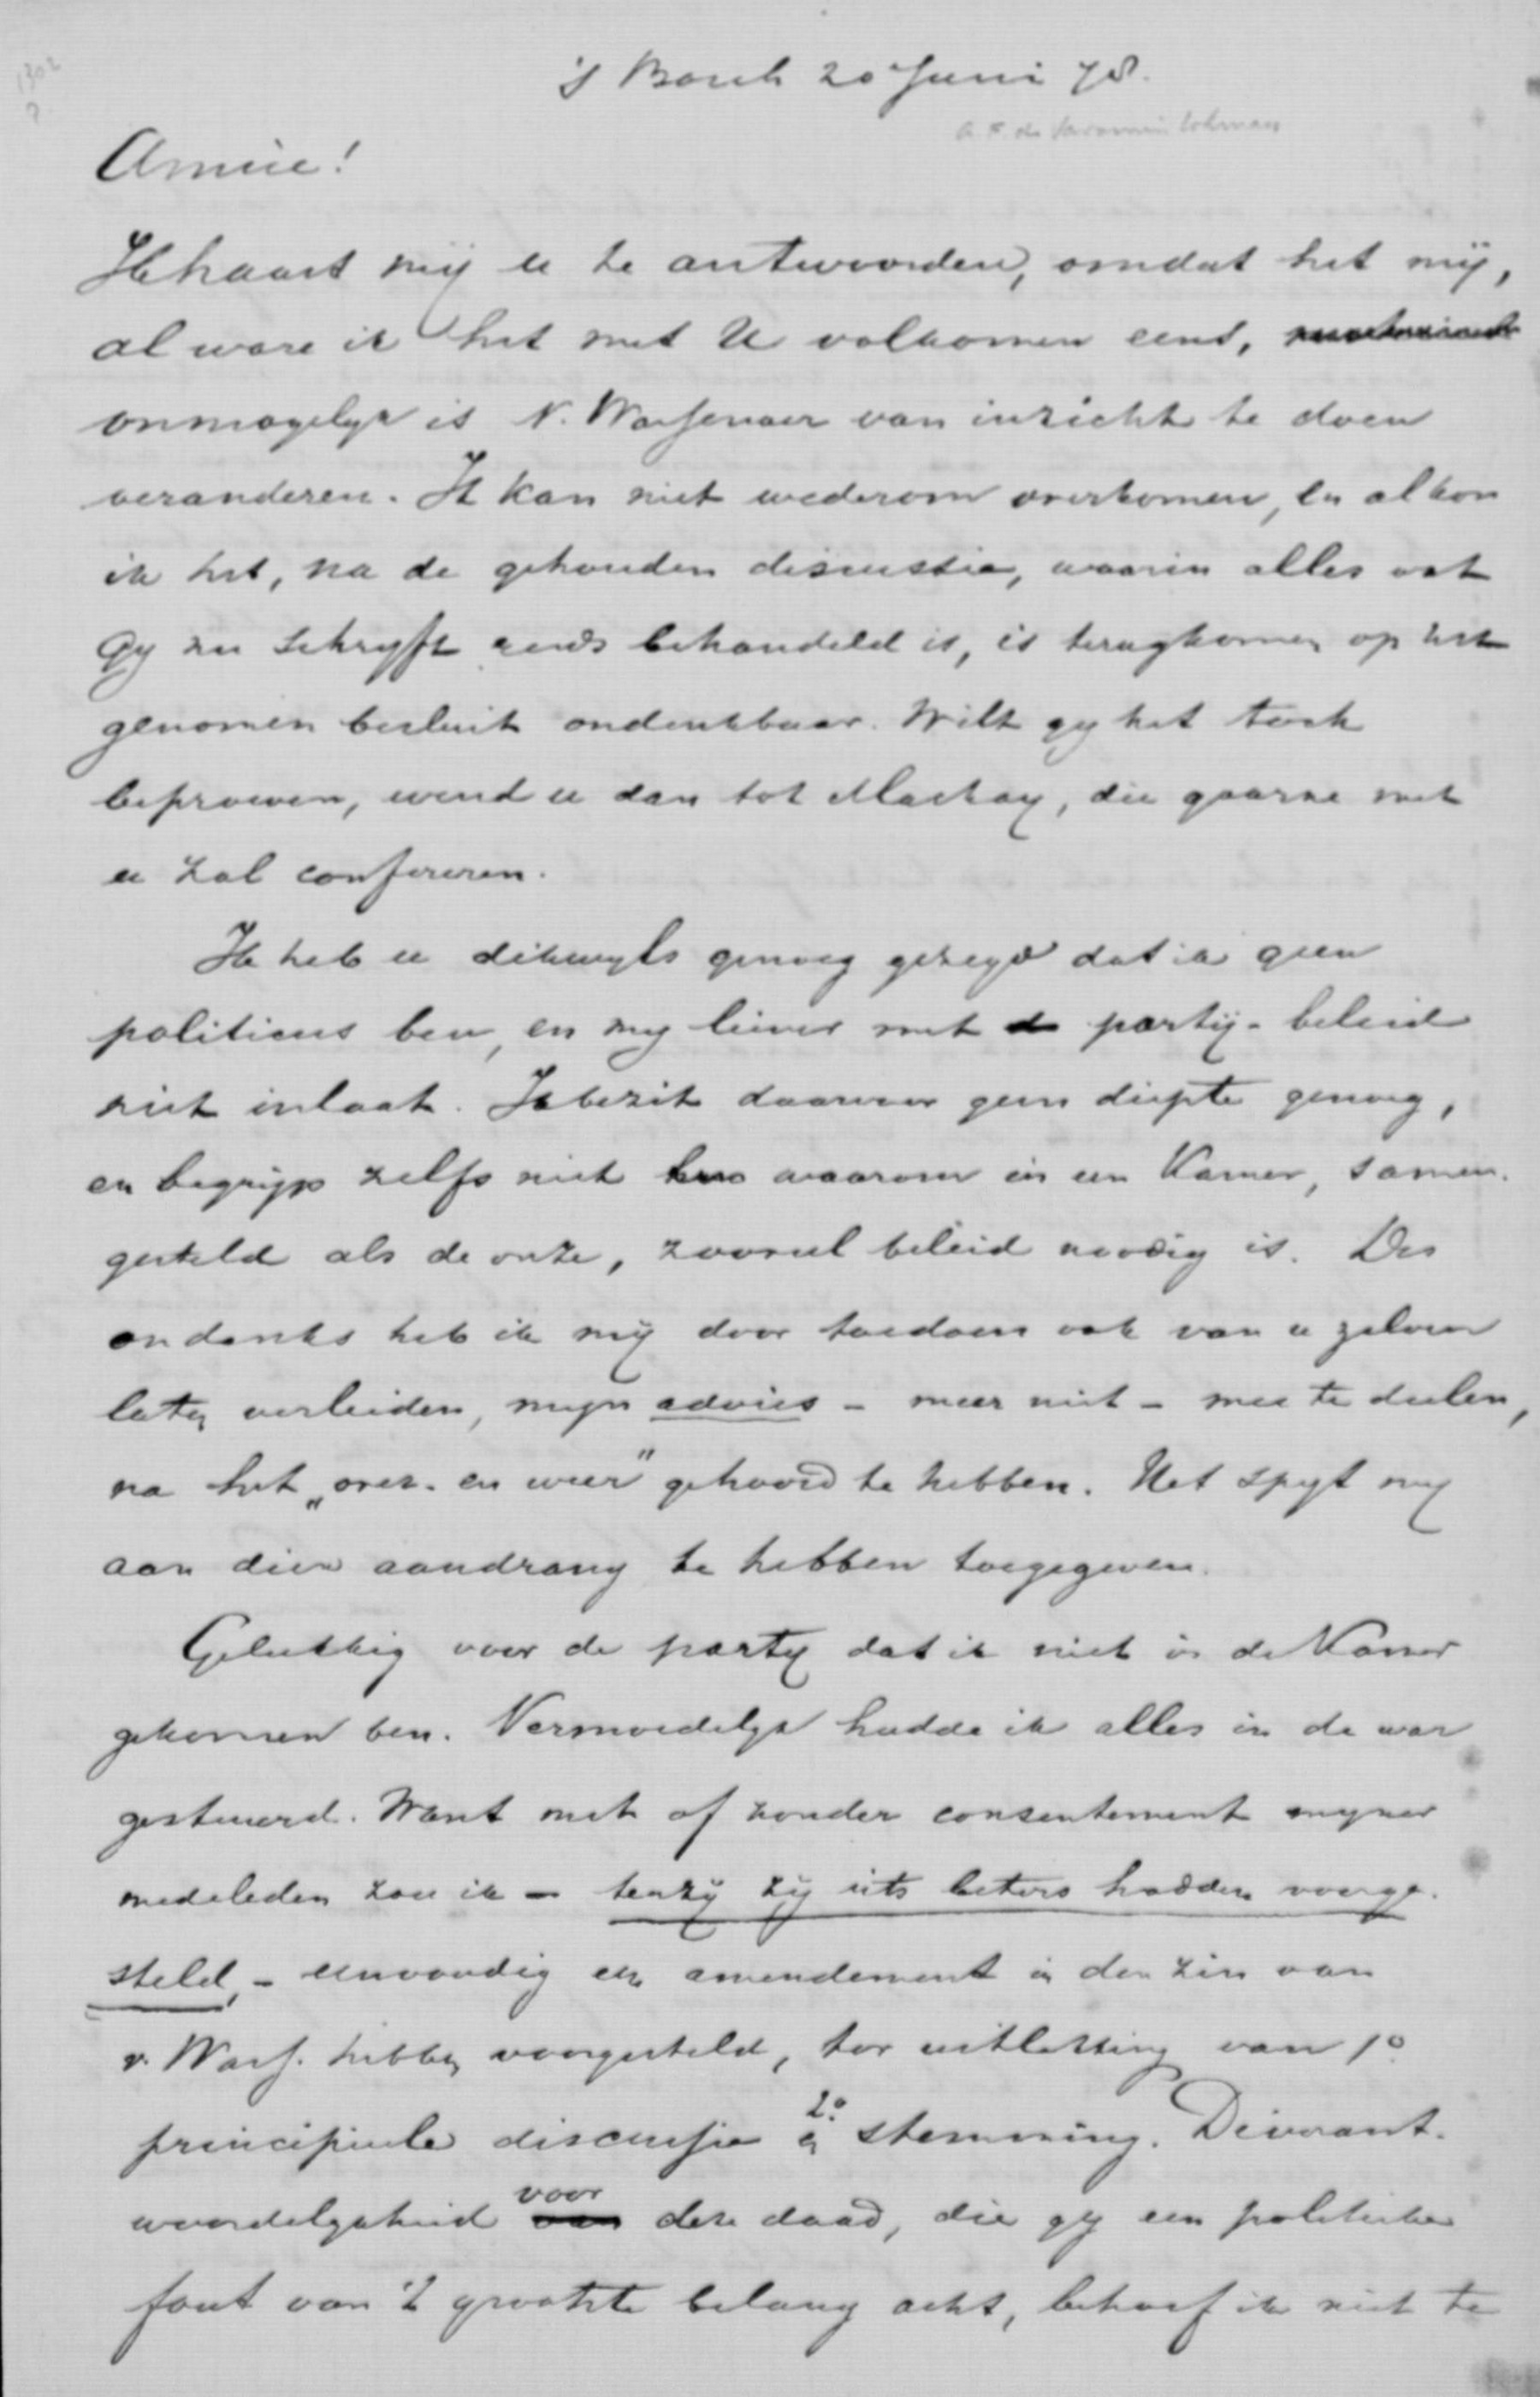 's Bosch 20 Juni 78.
A. F. de Savornin Lohman
1302
?
Amice!
Ik haast mij u te antwoorden, omdat het mij,
al ware ik het met U volkomen eens,
onmogelyk is v. Wassenaer van inzicht te doen
veranderen. Ik kan niet wederom overkomen, en al kon
ik het, na de gehouden discussie, waarin alles wat
Gy nu schryft reeds behandeld is, is terugkomen op het
genomen besluit ondenkbaar. Wilt gy het toch
beproeven, wend u dan tot Mackay, die gaarne met
u zal confereren.
Ik heb u dikwyls genoeg gezegd dat ik geen
politicus ben, en my liever met de partij-beleid
niet inlaat. Ik bezit daarvoor geen diepte genoeg,
en begrijp zelfs niet waarom in een Kamer, samen-
gesteld als de onze, zooveel beleid noodig is. Des
ondanks heb ik mij door toedoen ook van u zelven
laten verleiden, mijn advies - meer niet - mee te deelen,
na het „over- en weer" gehoord te hebben. Het spyt my
aan dien aandrang te hebben toegegeven.
Gelukkig voor de party dat ik niet in de Kamer
gekomen ben. Vermoedelyk hadde ik alles in de war
gestuurd. Want met of zonder consentement myner
medeleden zou ik - tenzij zij iets beters hadden voorge-
steld, - eenvoudig een amendement in den zin van
v. Wass. hebben voorgesteld, ter uitlokking van 1o
principieele discussie en 2o. stemming. De verant-
woordelykheid voor deze daad, die gy een politieke
fout van 't grootste belang acht, behoef ik niet te